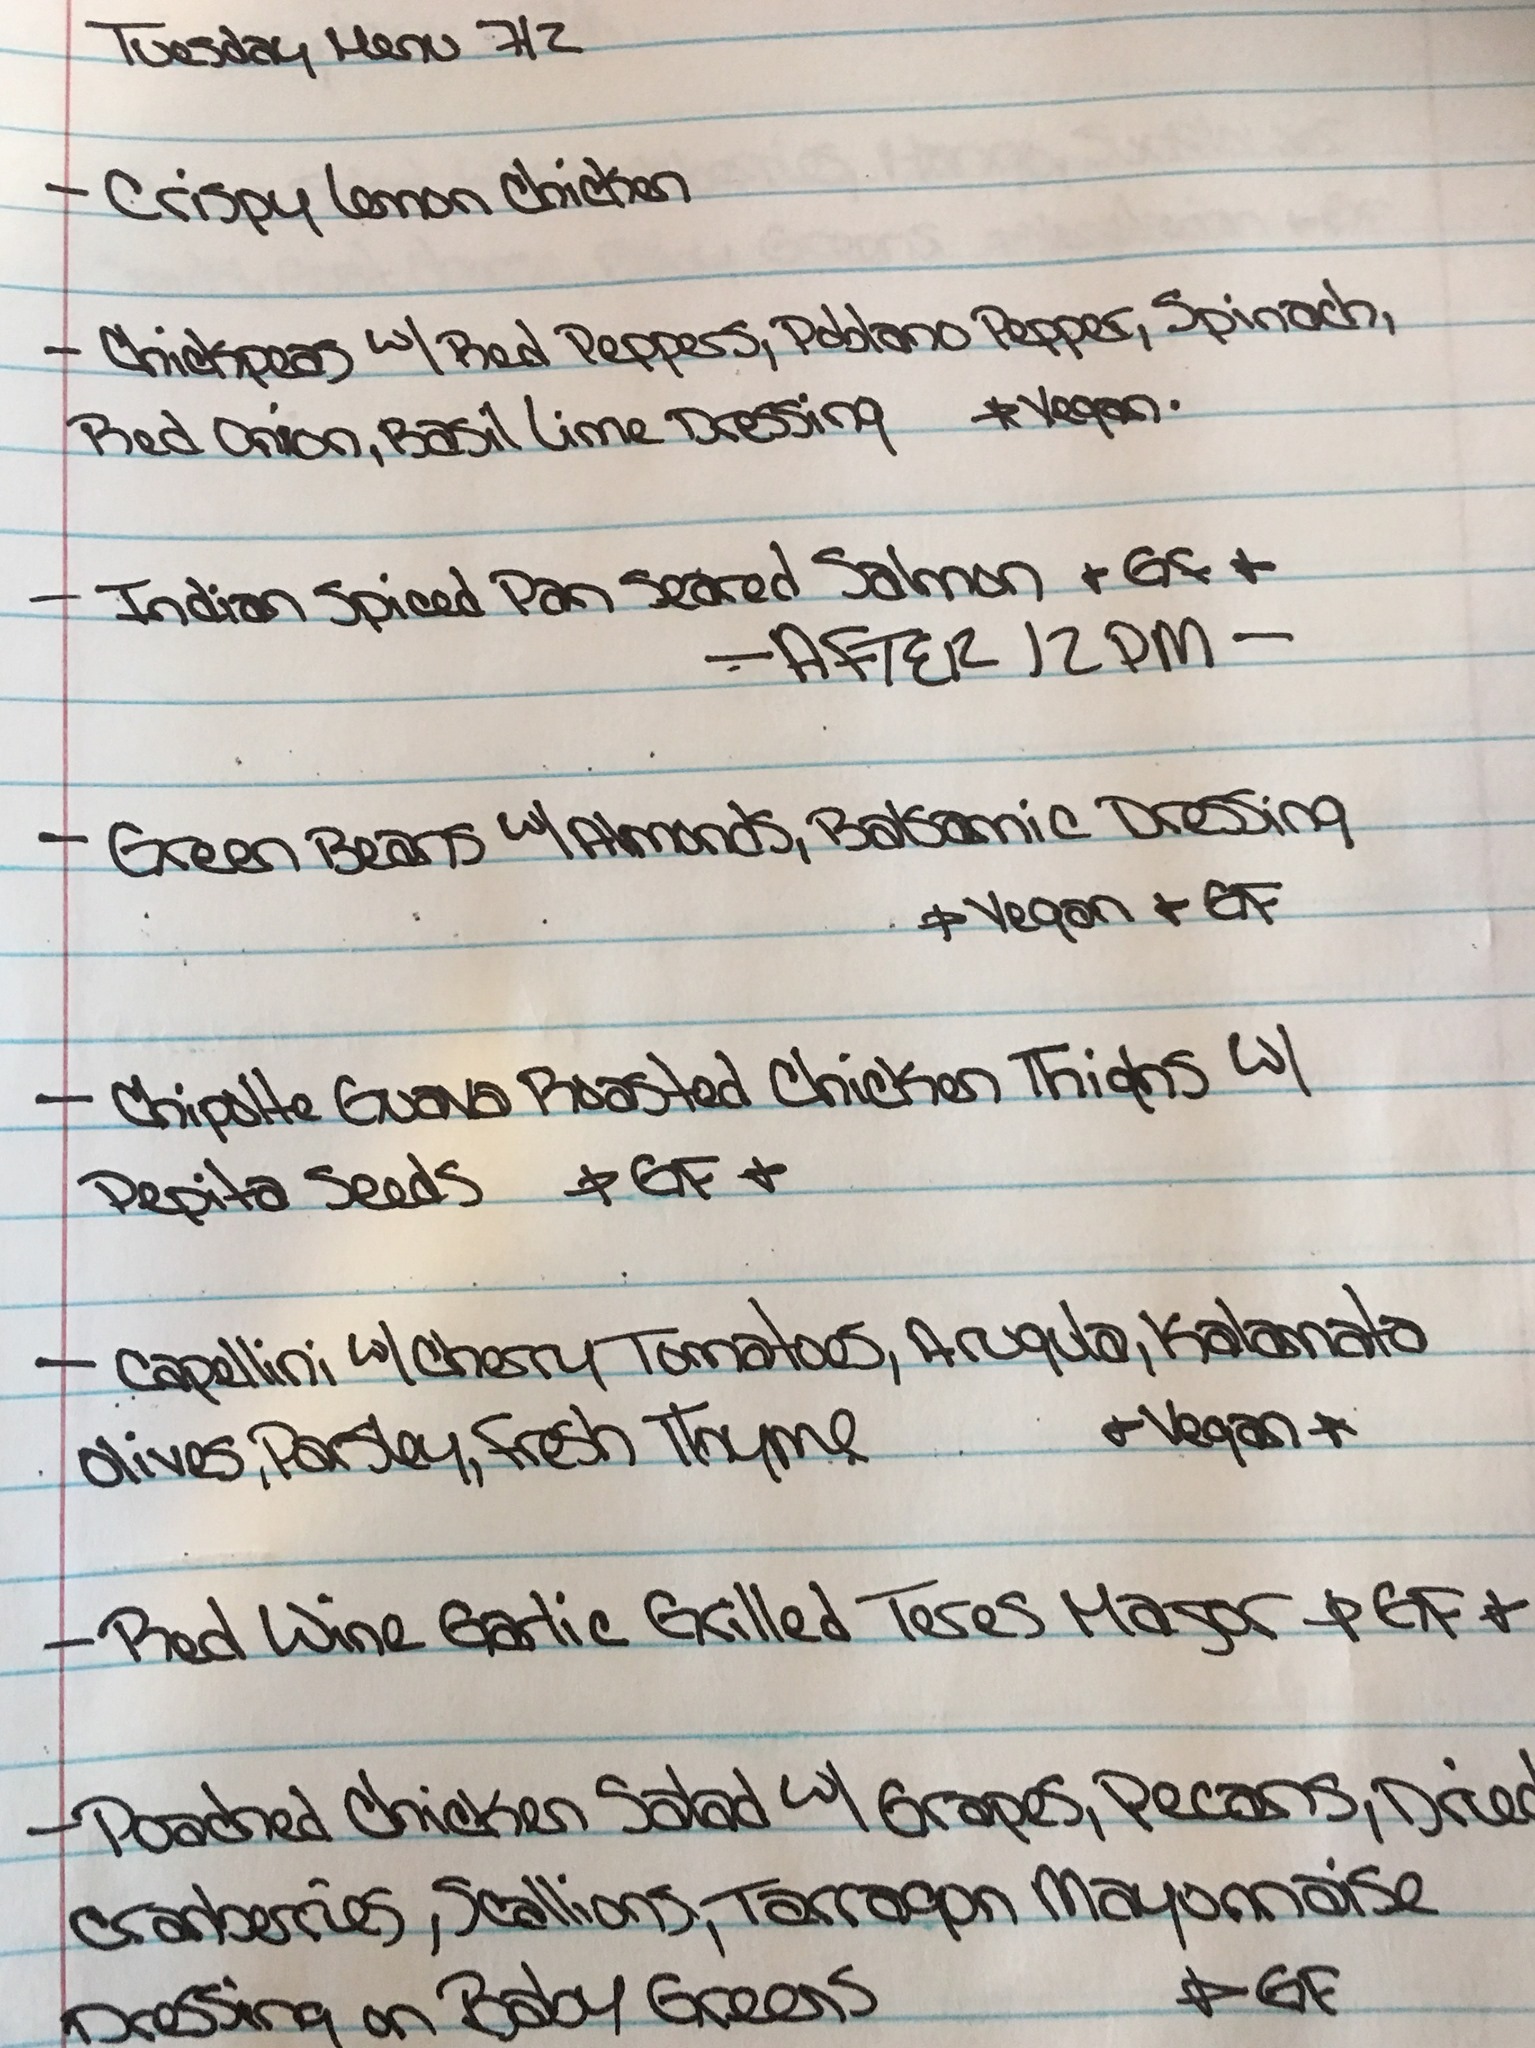 Tuesday Menu 7/2
- Crispy Lemon Chicken
- Chickpeas w/ Red Peppers, Poblano Pepper, Spinach,
Red Onion, Basil Lime Dressing *Vegan.
- Indian Spiced Pan Seared Salmon * GF *
- AFTER 12 PM -
- Green Beans w/ Almonds, Balsamic Dressing
* Vegan * GF
- Chipolte Guava Roasted Chicken Thighs w/
Pepita Seeds * GF *
- Capellini w/ Cherry Tomatoes, Arugula, Kalamata
Olives, Parsley, Fresh Thyme * Vegan *
- Red Wine Garlic Grilled Teres Major * GF *
- Poached Chicken Salad w/ Grapes, Pecans, Dried
Cranberries, Scallions, Tarragon Mayonnaise
Dressing on Baby Greens * GF